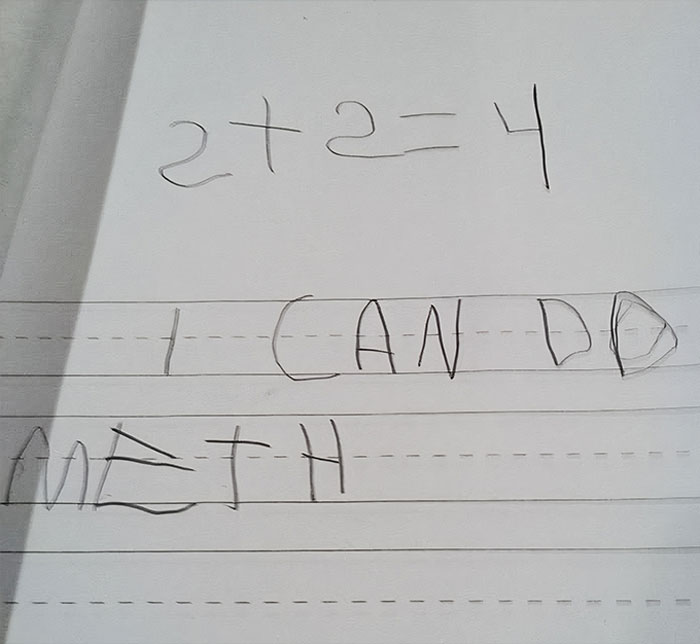 2+2=4
I CAN DO
METH